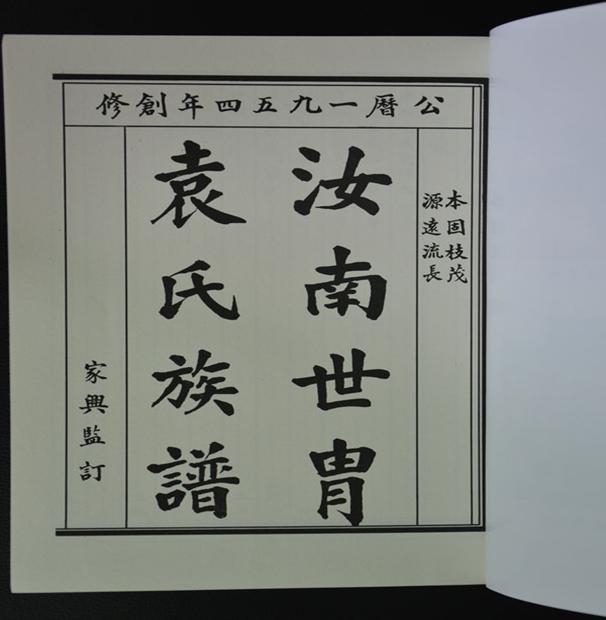 公曆一九五四年創修
本固枝茂
源遠流長
汝南世胄
袁氏族譜
家興監訂